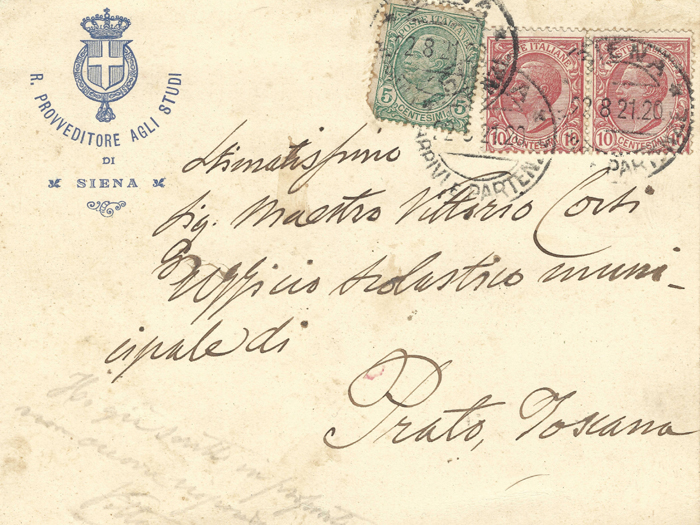 R. PROVVEDITORE AGLI STUDI
DI
SIENA
POSTE ITALIANE
5 CENTESIMI 5
10 CENTESIMI 10
10 CENTESIMI
SIENA
28 8 21.20
ARRIVI E PARTENZE
PARTENZE
Stimatissimo
Sig. Maestro Vittorio Corti
Ufficio scolastico muni-
cipale di
Prato, Toscana